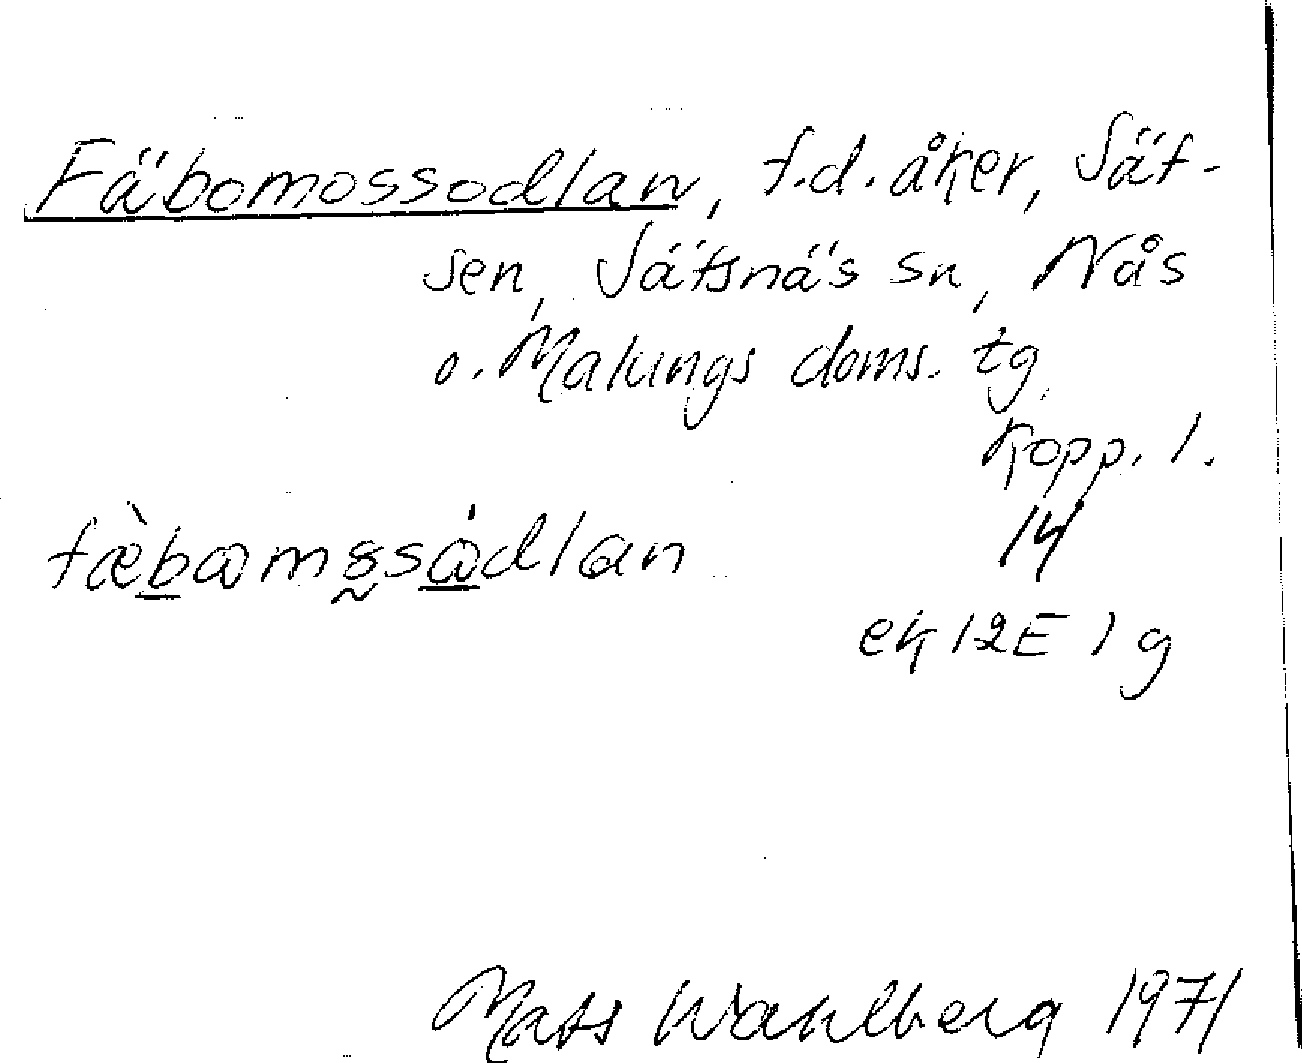 Fäbomossodlan, f.d. åker, Sät-
sen, Sätsnäs sn, Nås
o. Malungs doms. tg
Kopp. l.
14
ek 12E 1g
Mats Wahlberg 1971